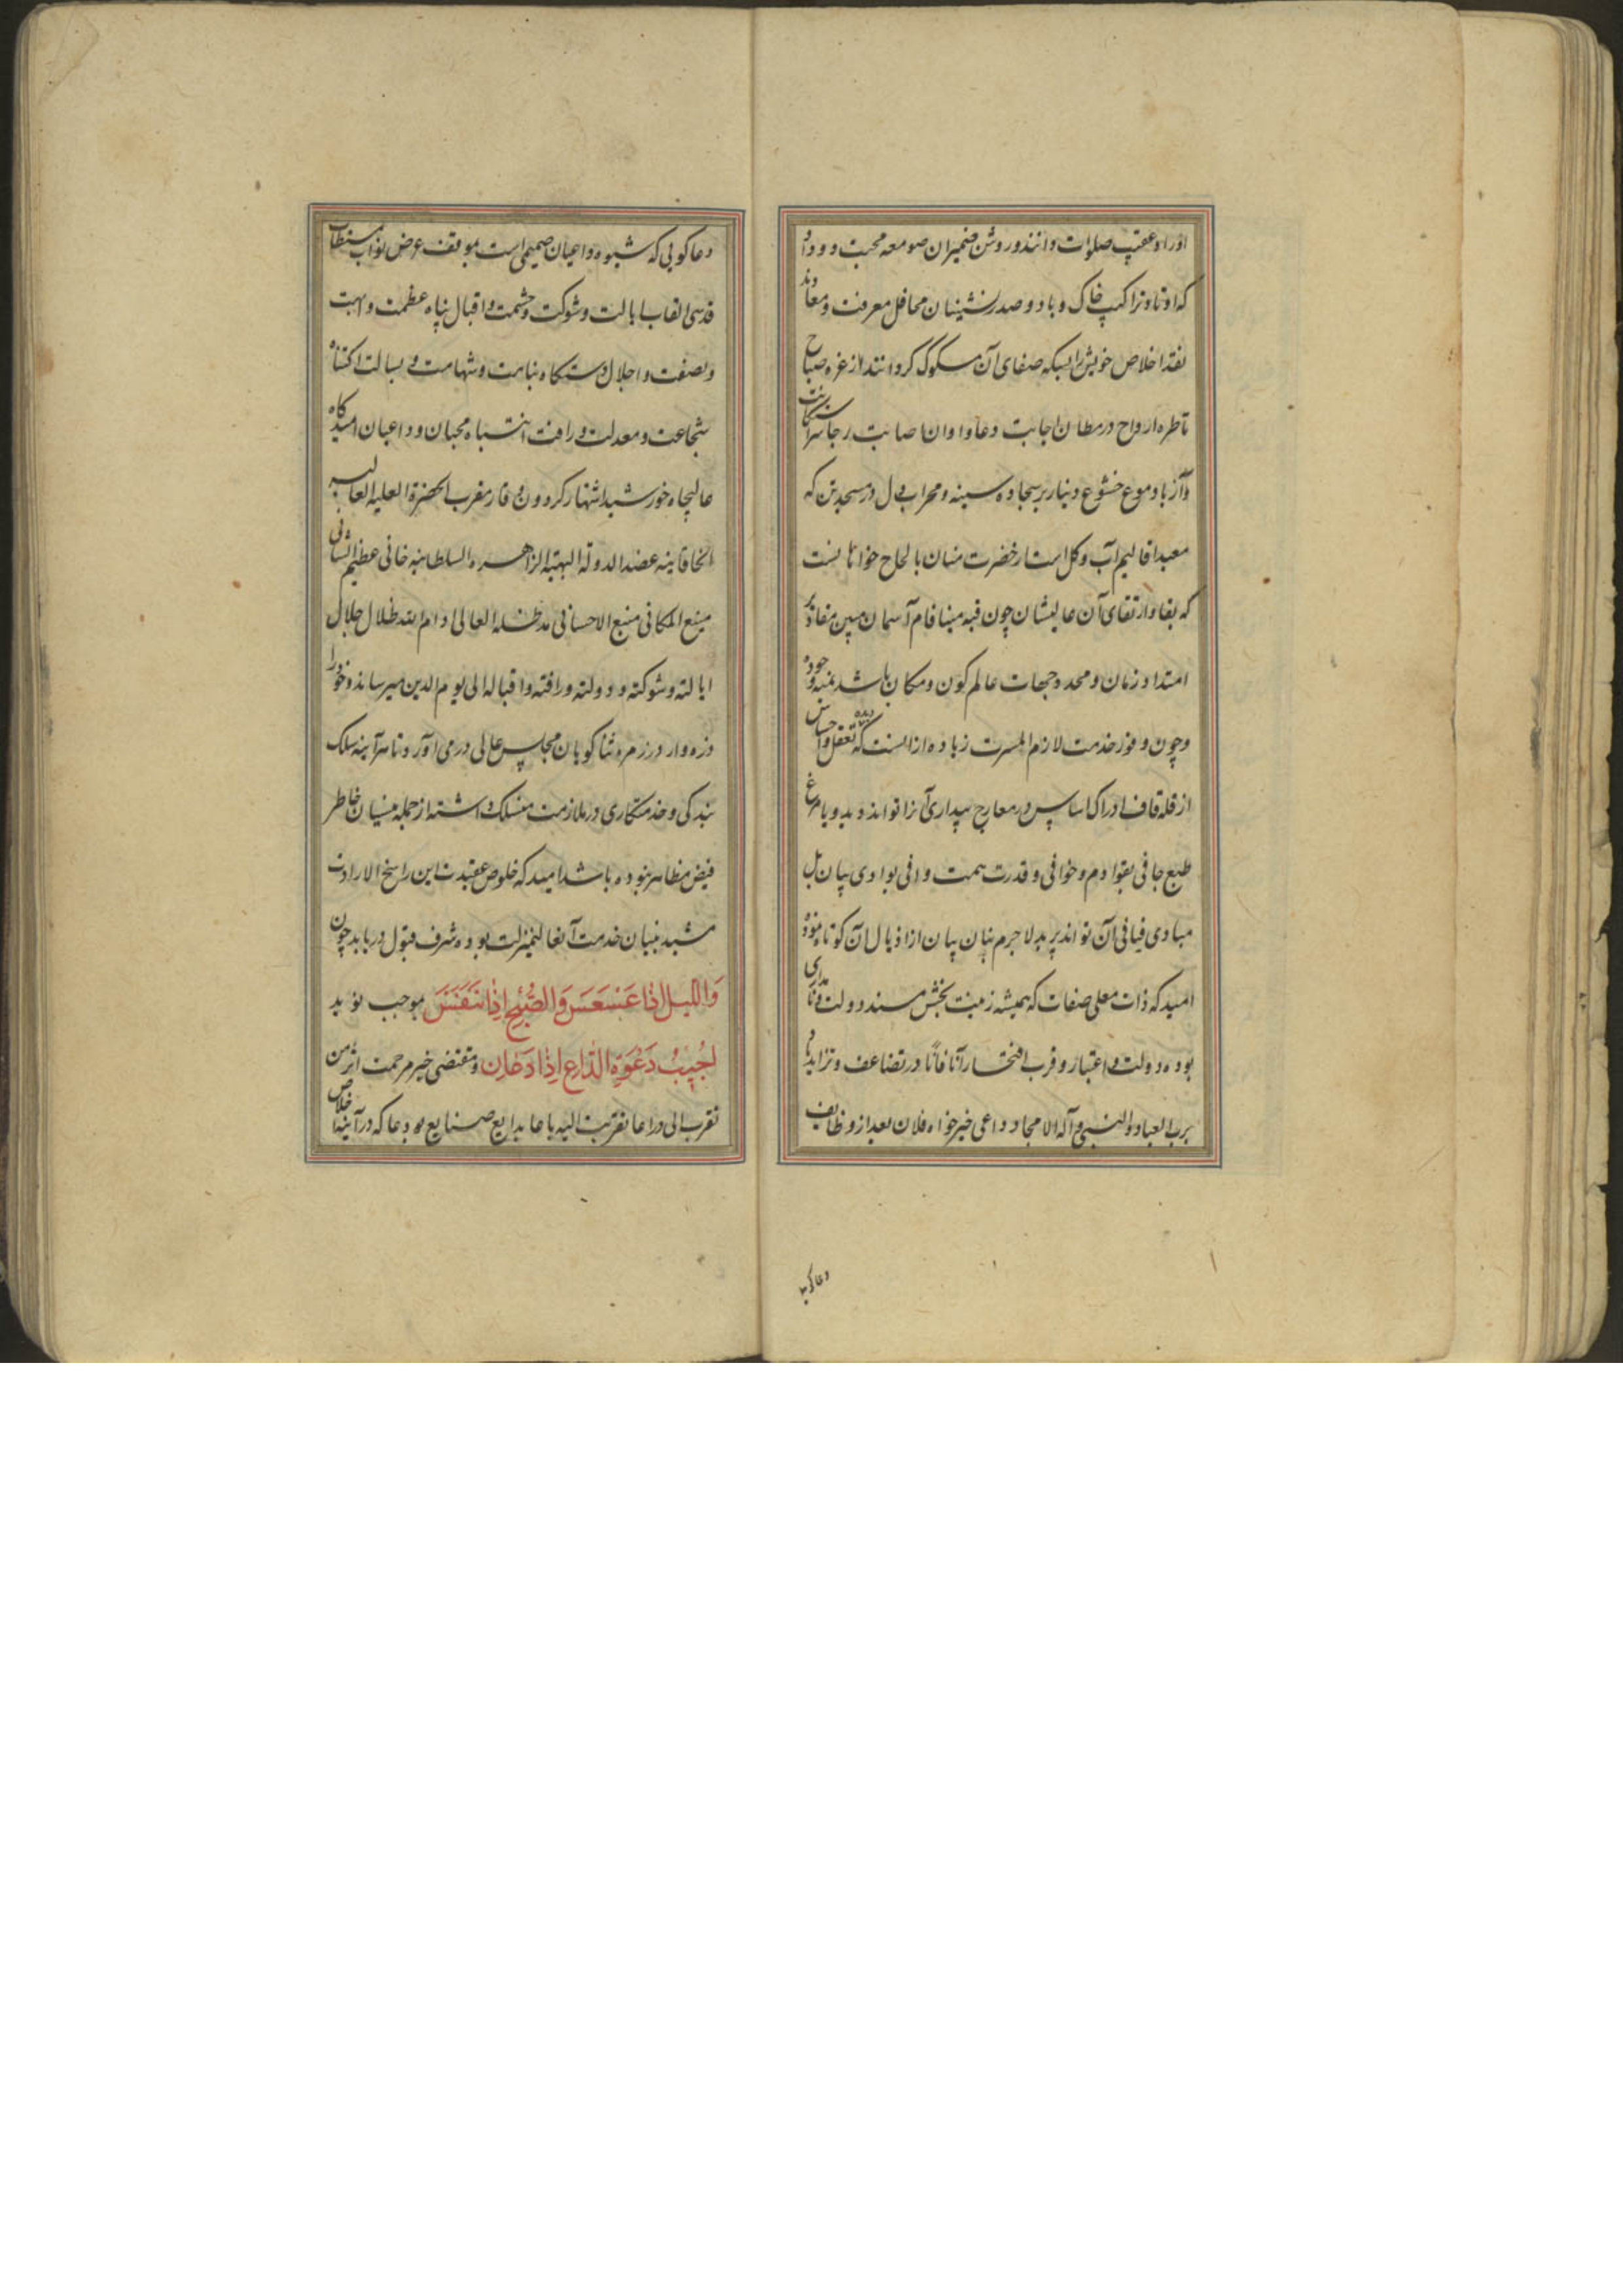 اوراد عقیب صلوات دانند و روشن ضمیران صومعه محبت و وداد
که اوتاد تراکیب خاک و باد و صدرنشینان محافل معرفت و معاوند
نقد اخلاص خویش را بسکه صفای آن مسکوک گردانند از غره صباح
تا طره ارواح در مظان اجابت دعا و اوان اصابت رجا
و از باد موع خشوع و نیاز بر سجاده سینه و محراب دل در مسجد تن که
معبد اقالیم آب و کل است از حضرت منان بالحاح خواهانست
که بقا و ارتقای آن عالیشان چون قبه مینا فام آسمان
امتداد زمان و محدد جهات عالم کون و مکان باشد بمنه وجوده
و چون وفور خدمت لازم المسرت زیاده از انست که دیده تعقل و احساس
از قله قاف ادراک و اساس در معارج بیداری آنرا تواند دید و یا مرغ
طبع جافی بقوادم و خوافی و قدرت همت وافی بوادی بیان بل
مبادی فیافی آن تواند پرید لاجرم بنان بیان از اذیال آن کوتاه نموده
امید که ذات معلی صفات که همیشه زینت بخش مسند دولت
بوده دولت و اعتبار و قرب افتخار آنا فآنا در تضاعف و تزاید باد
برب العباد و النبی و آله الامجاد داعی خیرخواه فلان بعد از وظایف
دعاکویی
دعا کویی که شیوه داعیان صمیمی است بموقف عرض نواب مستطاب
قدسی القاب ایالت و شوکت و حشمت و اقبال پناه عظمت و ابهت
و نصفت و اجلال دستکاه نباهت و شهامت و بسالت اکتناه
شجاعت و معدلت و رافت انتباه محبان و داعیان امیدکاه
عالیجاه خورشید اشتهار کردون وقار مقرب الحضرة العلیه العالیه
الخاقانیه عضد الدولة البهیه الزاهره السلطانیه خانی عظیم الشانی
منیع المکانی منبع الاحسانی مد ظله العالی ادام الله ظلال جلال
ایالته و شوکته و دولته و رافته و اقباله الی یوم الدین میرساند و خود را
ذره وار در زمره ثنا کویان مجالس عالی در می آورد تا هر آینه سلک
بندکی و خدمتکاری در ملازمت منسلک داشته از جمله منسیان خاطر
فیض مظاهر نبوده باشد امید که خلوص عقیدت این راسخ الارادت
مشید بنیان خدمت آنعالیمنزلت بوده شرف قبول دریابد چون
وَاللَّیْلِ اِذَا عَسْعَسَ وَالصُّبْحِ اِذَا تَنَفَّسَ بموجب نوید
اُجِیبُ دَعْوَةَ الدَّاعِ اِذَا دَعَانِ و مقتضی خبر مرحمت اثر من
تقرب الی ذراعا تقربت الیه باعا بدایع صنایع دعا که در آینه اخلاص